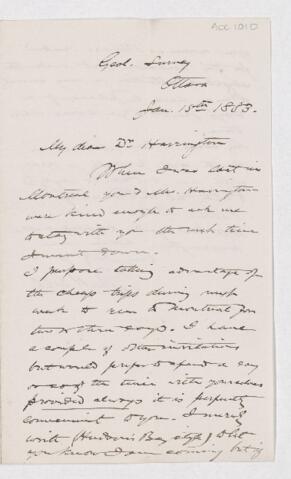 ACC 1010
Geol. Survey
Ottawa
Jan. 15th 1883.
My dear Dr. Harrington
When I was last in
Montreal you & Mrs. Harrington
were kind enough to ask me
to stay with you the next time
I went down.
I purpose taking advantage of
the cheap trips during next
week to run to Montreal for
two or three days. I have
a couple of other invitations
but would prefer to spend a day
or so of the time with yourselves
provided always it is perfectly
convenient to you. I merely
write (Hudson's Bay style) to let
you know I am coming but if